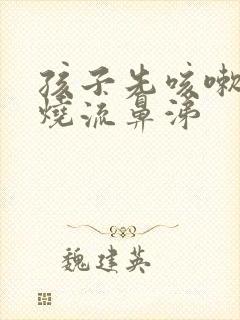 孩子先咳嗽
燒流鼻涕
魏建英